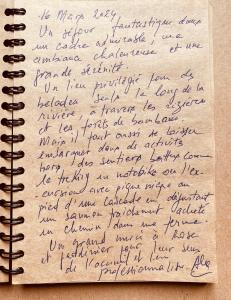 16 Mars 2024
Un séjour fantastique dans
un cadre admirable, une
ambiance chaleureuse et une
grande sérénité.
Un lieu privilégié pour des
balades seuls le long de la
rivière, à travers les rizières
et les forêts de bambous.
Mais il faut aussi se laisser
embarquer dans des activités
hors des sentiers battus comme
le treking en motobike ou l'ex-
cursion avec pique nique au
pied d'une cascade en dégustant
un saumon fraîchement acheté
en chemin dans une ferme.
Un grand merci à Rose
et pour leur sens
de l'accueil et leur
professionnalisme